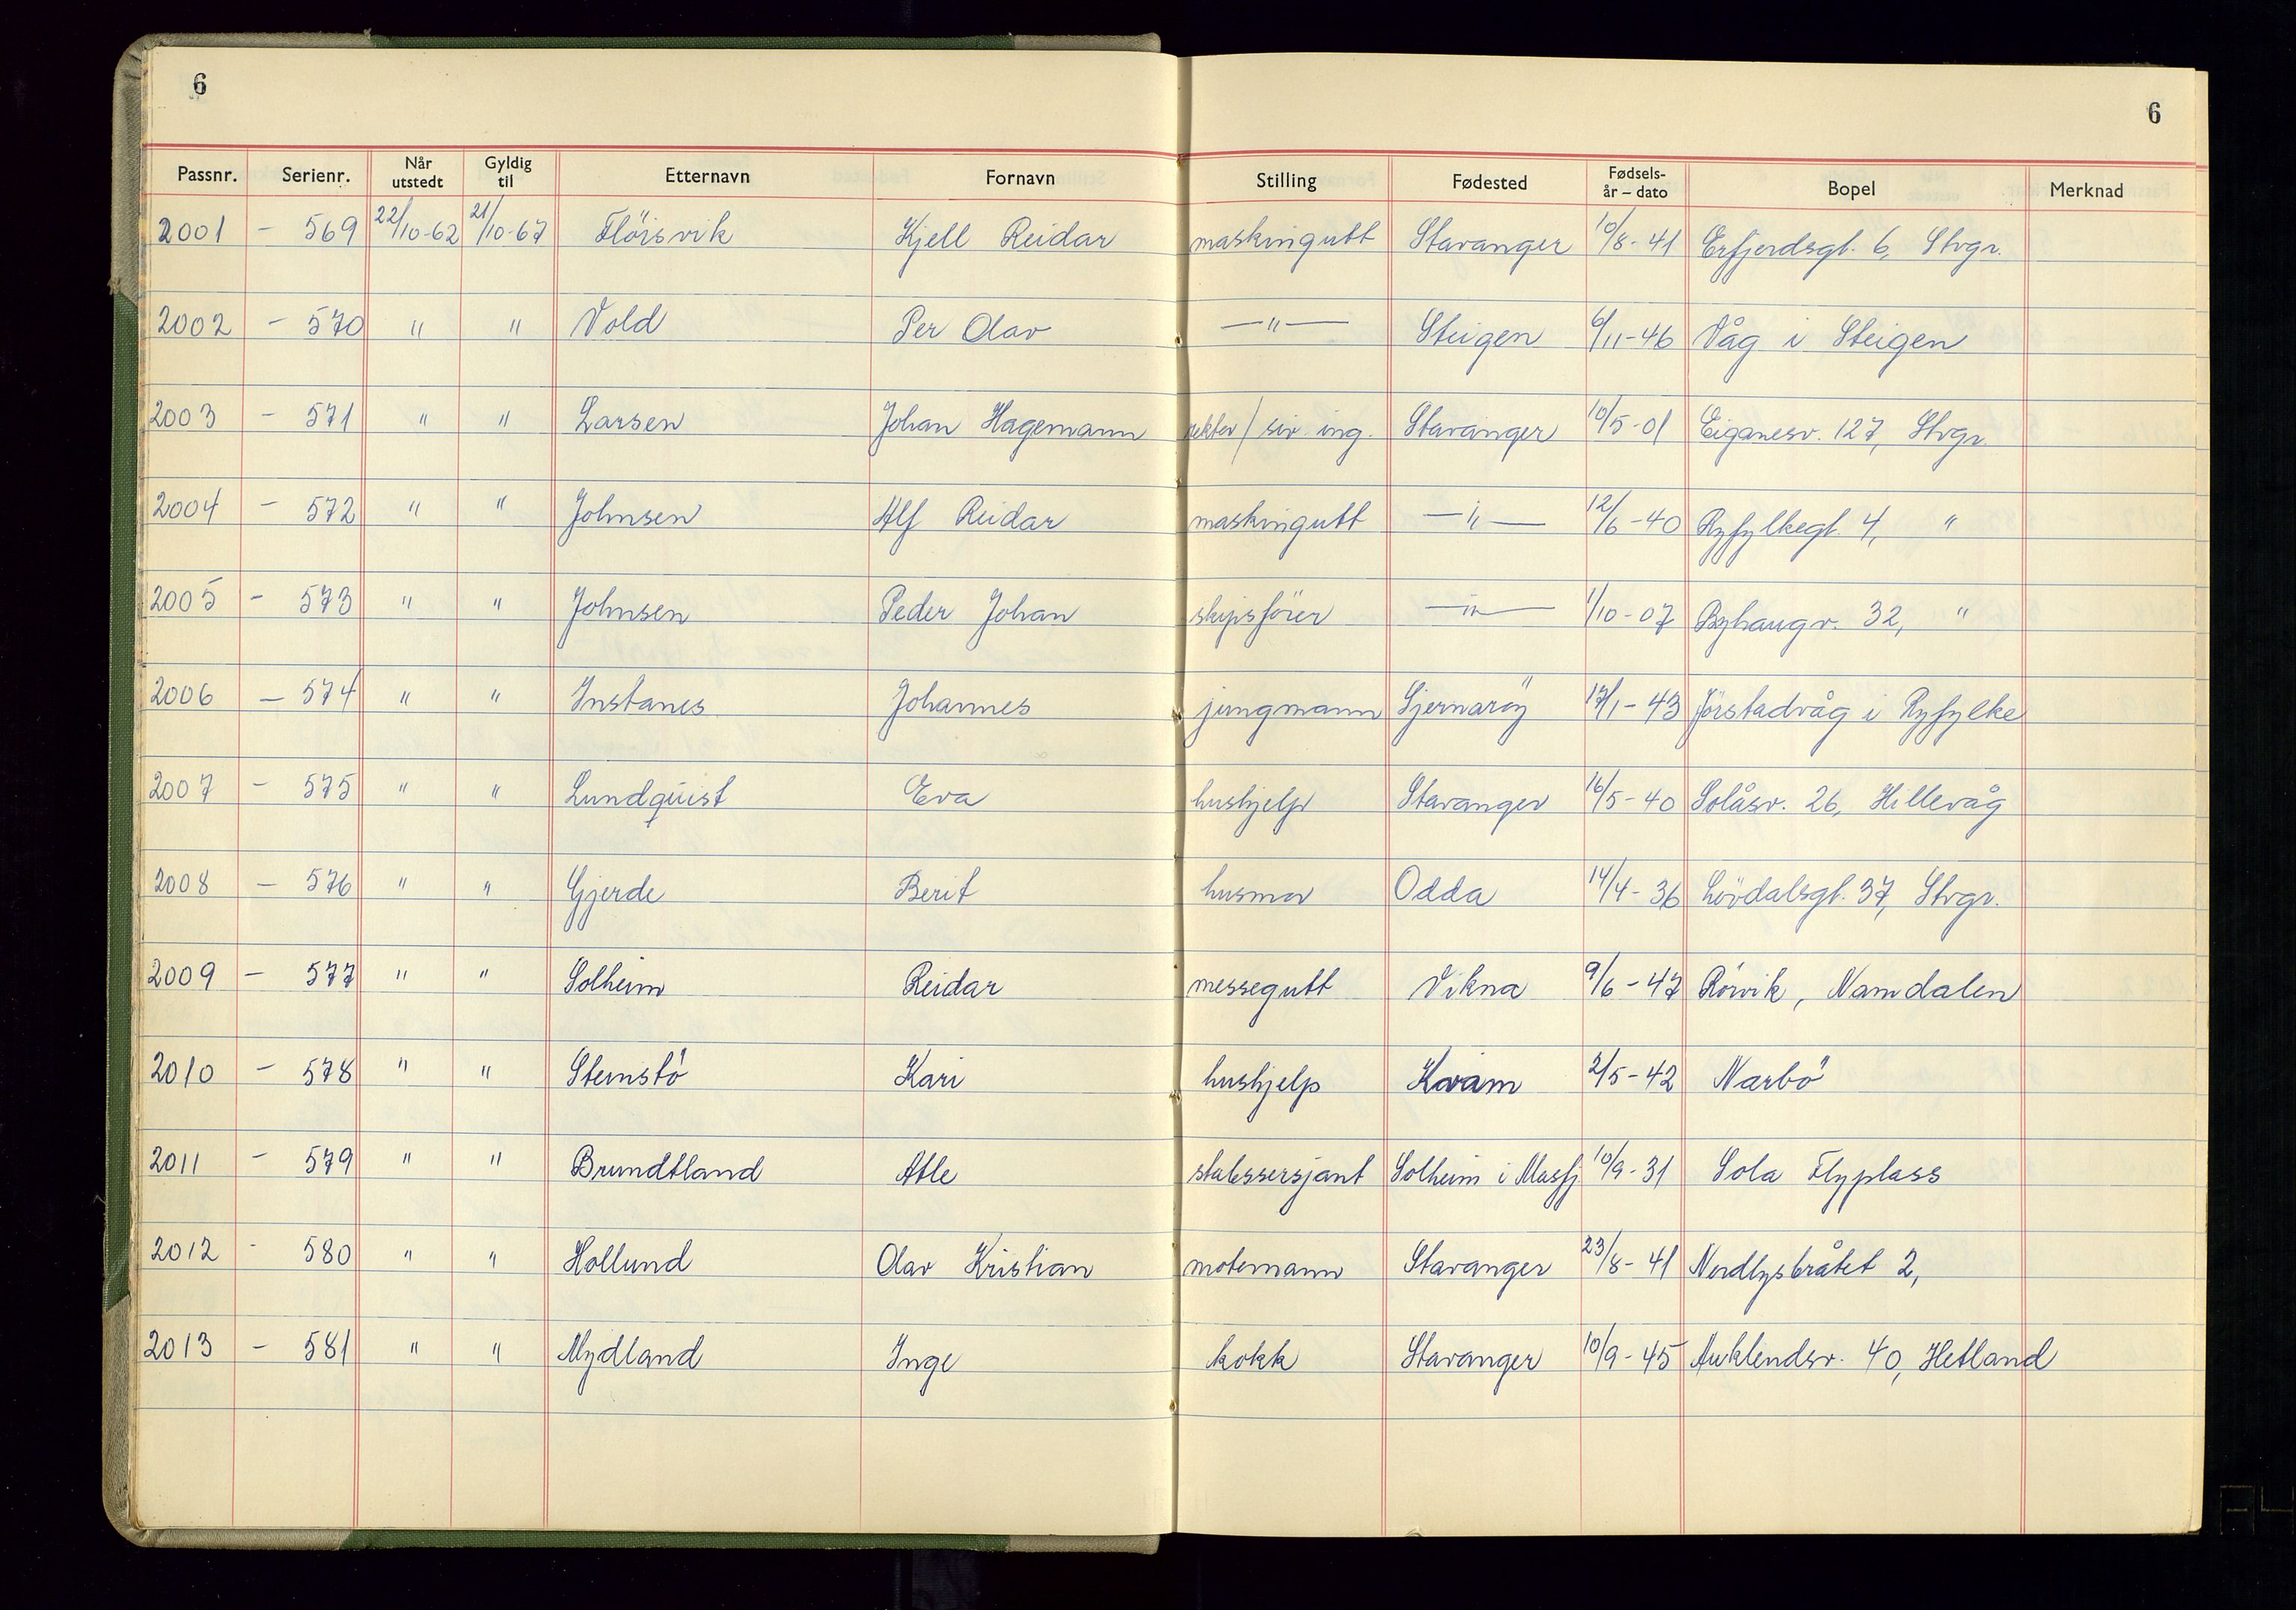 6
6
Passnr. Serienr. Når utstedt Gyldig til Etternavn Fornavn Stilling Fødested Fødsels-år – dato Bopel Merknad
2001 – 569 22/10-62 21/10-67 Flöisvik Kjell Reidar maskingutt Stavanger 10/8-41 Erfjordsgt. 6, Stvgr.
2002 – 570 " " Vold Per Olav —"— Steigen 6/11-46 Våg i Steigen
2003 – 571 " " Larsen Johan Hagemann rektor/siv. ing. Stavanger 10/5-01 Eiganesv. 127, Stvgr.
2004 – 572 " " Johnsen Alf Reidar maskingutt —"— 12/6-40 Ryfylkegt. 4, "
2005 – 573 " " Johnsen Peder Johan skipsförer —"— 1/10-07 Byhaugv. 32, "
2006 – 574 " " Instanes Johannes jungmann Sjernaröy 17/1-43 Jörstadvåg i Ryfylke
2007 – 575 " " Lundquist Eva hushjelp Stavanger 16/5-40 Solåsv. 26, Hillevåg
2008 – 576 " " Gjerde Berit husmor Odda 14/4-36 Lövdalsgt. 37, Stvgr.
2009 – 577 " " Solheim Reidar messegutt Vikna 9/6-47 Rörvik, Namdalen
2010 – 578 " " Steinstö Kari hushjelp Kvam 2/5-42 Narbö
2011 – 579 " " Brundtland Atle stabssersjant Solheim i Masfj. 10/9-31 Sola Flyplass
2012 - 580 " " Hollund Olav Kristian motormann Stavanger 23/8-41 Nordlysbråtet 2,
2013 – 581 " " Mydland Inge kokk Stavanger 10/9-45 Auklendsv. 40, Hetland